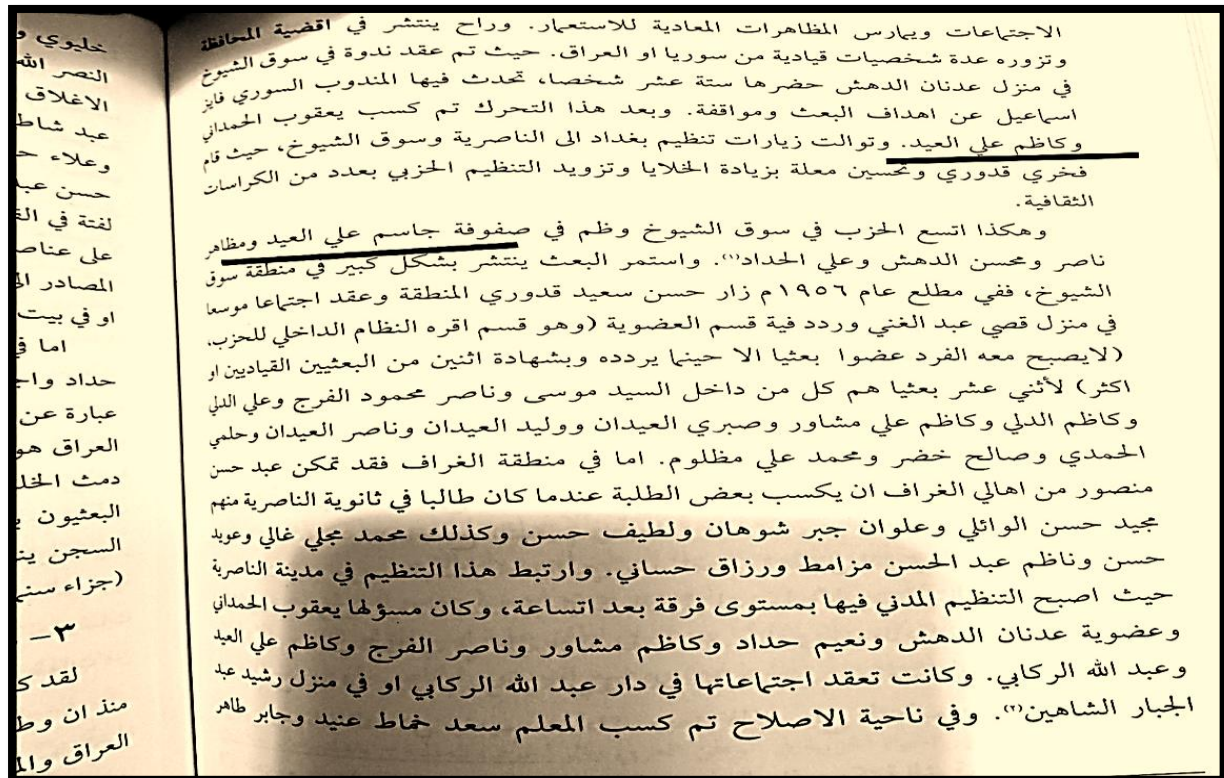 الاجتماعات ويمارس المظاهرات المعادية للاستعمار. وراح ينتشر في اقضية المحافظة
وتزوره عدة شخصيات قيادية من سوريا او العراق. حيث تم عقد ندوة في سوق الشيوخ
في منزل عدنان الدهش حضرها ستة عشر شخصا، تحدث فيها المندوب السوري فايز
اسماعيل عن اهداف البعث ومواقفة. وبعد هذا التحرك تم كسب يعقوب الحمداني
وكاظم علي العيد. وتوالت زيارات تنظيم بغداد الى الناصرية وسوق الشيوخ، حيث قام
فخري قدوري وتحسين معلة بزيادة الخلايا وتزويد التنظيم الحزبي بعدد من الكراسات
الثقافية.
وهكذا اتسع الحزب في سوق الشيوخ وظم في صفوفة جاسم علي العيد ومظاهر
ناصر ومحسن الدهش وعلي الحداد(١). واستمر البعث ينتشر بشكل كبير في منطقة سوق
الشيوخ، ففي مطلع عام ١٩٥٦م زار حسن سعيد قدوري المنطقة وعقد اجتماعا موسعا
في منزل قصي عبد الغني وردد فية قسم العضوية (وهو قسم اقره النظام الداخلي للحزب،
(لايصبح معه الفرد عضوا بعثيا الا حينما يردده وبشهادة اثنين من البعثيين القياديين او
اكثر) لأثني عشر بعثيا هم كل من داخل السيد موسى وناصر محمود الفرج وعلي الدلي
وكاظم الدلي وكاظم علي مشاور وصبري العيدان ووليد العيدان وناصر العيدان وحلمي
الحمدي وصالح خضر ومحمد علي مظلوم. اما في منطقة الغراف فقد تمكن عبد حسن
منصور من اهالي الغراف ان يكسب بعض الطلبة عندما كان طالبا في ثانوية الناصرية منهم
مجيد حسن الوائلي وعلوان جبر شوهان ولطيف حسن وكذلك محمد مجلي غالي وعويد
حسن وناظم عبد الحسن مزامط ورزاق حساني. وارتبط هذا التنظيم في مدينة الناصرية
حيث اصبح التنظيم المدني فيها بمستوى فرقة بعد اتساعة، وكان مسؤلها يعقوب الحمداني
وعضوية عدنان الدهش ونعيم حداد وكاظم مشاور وناصر الفرج وكاظم علي العيد
وعبد الله الركابي. وكانت تعقد اجتماعاتها في دار عبد الله الركابي او في منزل رشيد عبد
الجبار الشاهين(٢). وفي ناحية الاصلاح تم كسب المعلم سعد خماط عنيد وجابر طاهر
خليوي و
النصر الله
الاغلاق
عبد شاط
وعلاء ح
حسن عبد
لفتة في الق
على عناص
المصادر الح
او في بيت
اما في
حداد واج
عبارة عن
العراق هو
دمث الخل
البعثيون ي
السجن ين
(جزاء سنم
٣-
لقد ك
منذ ان وط
العراق والم